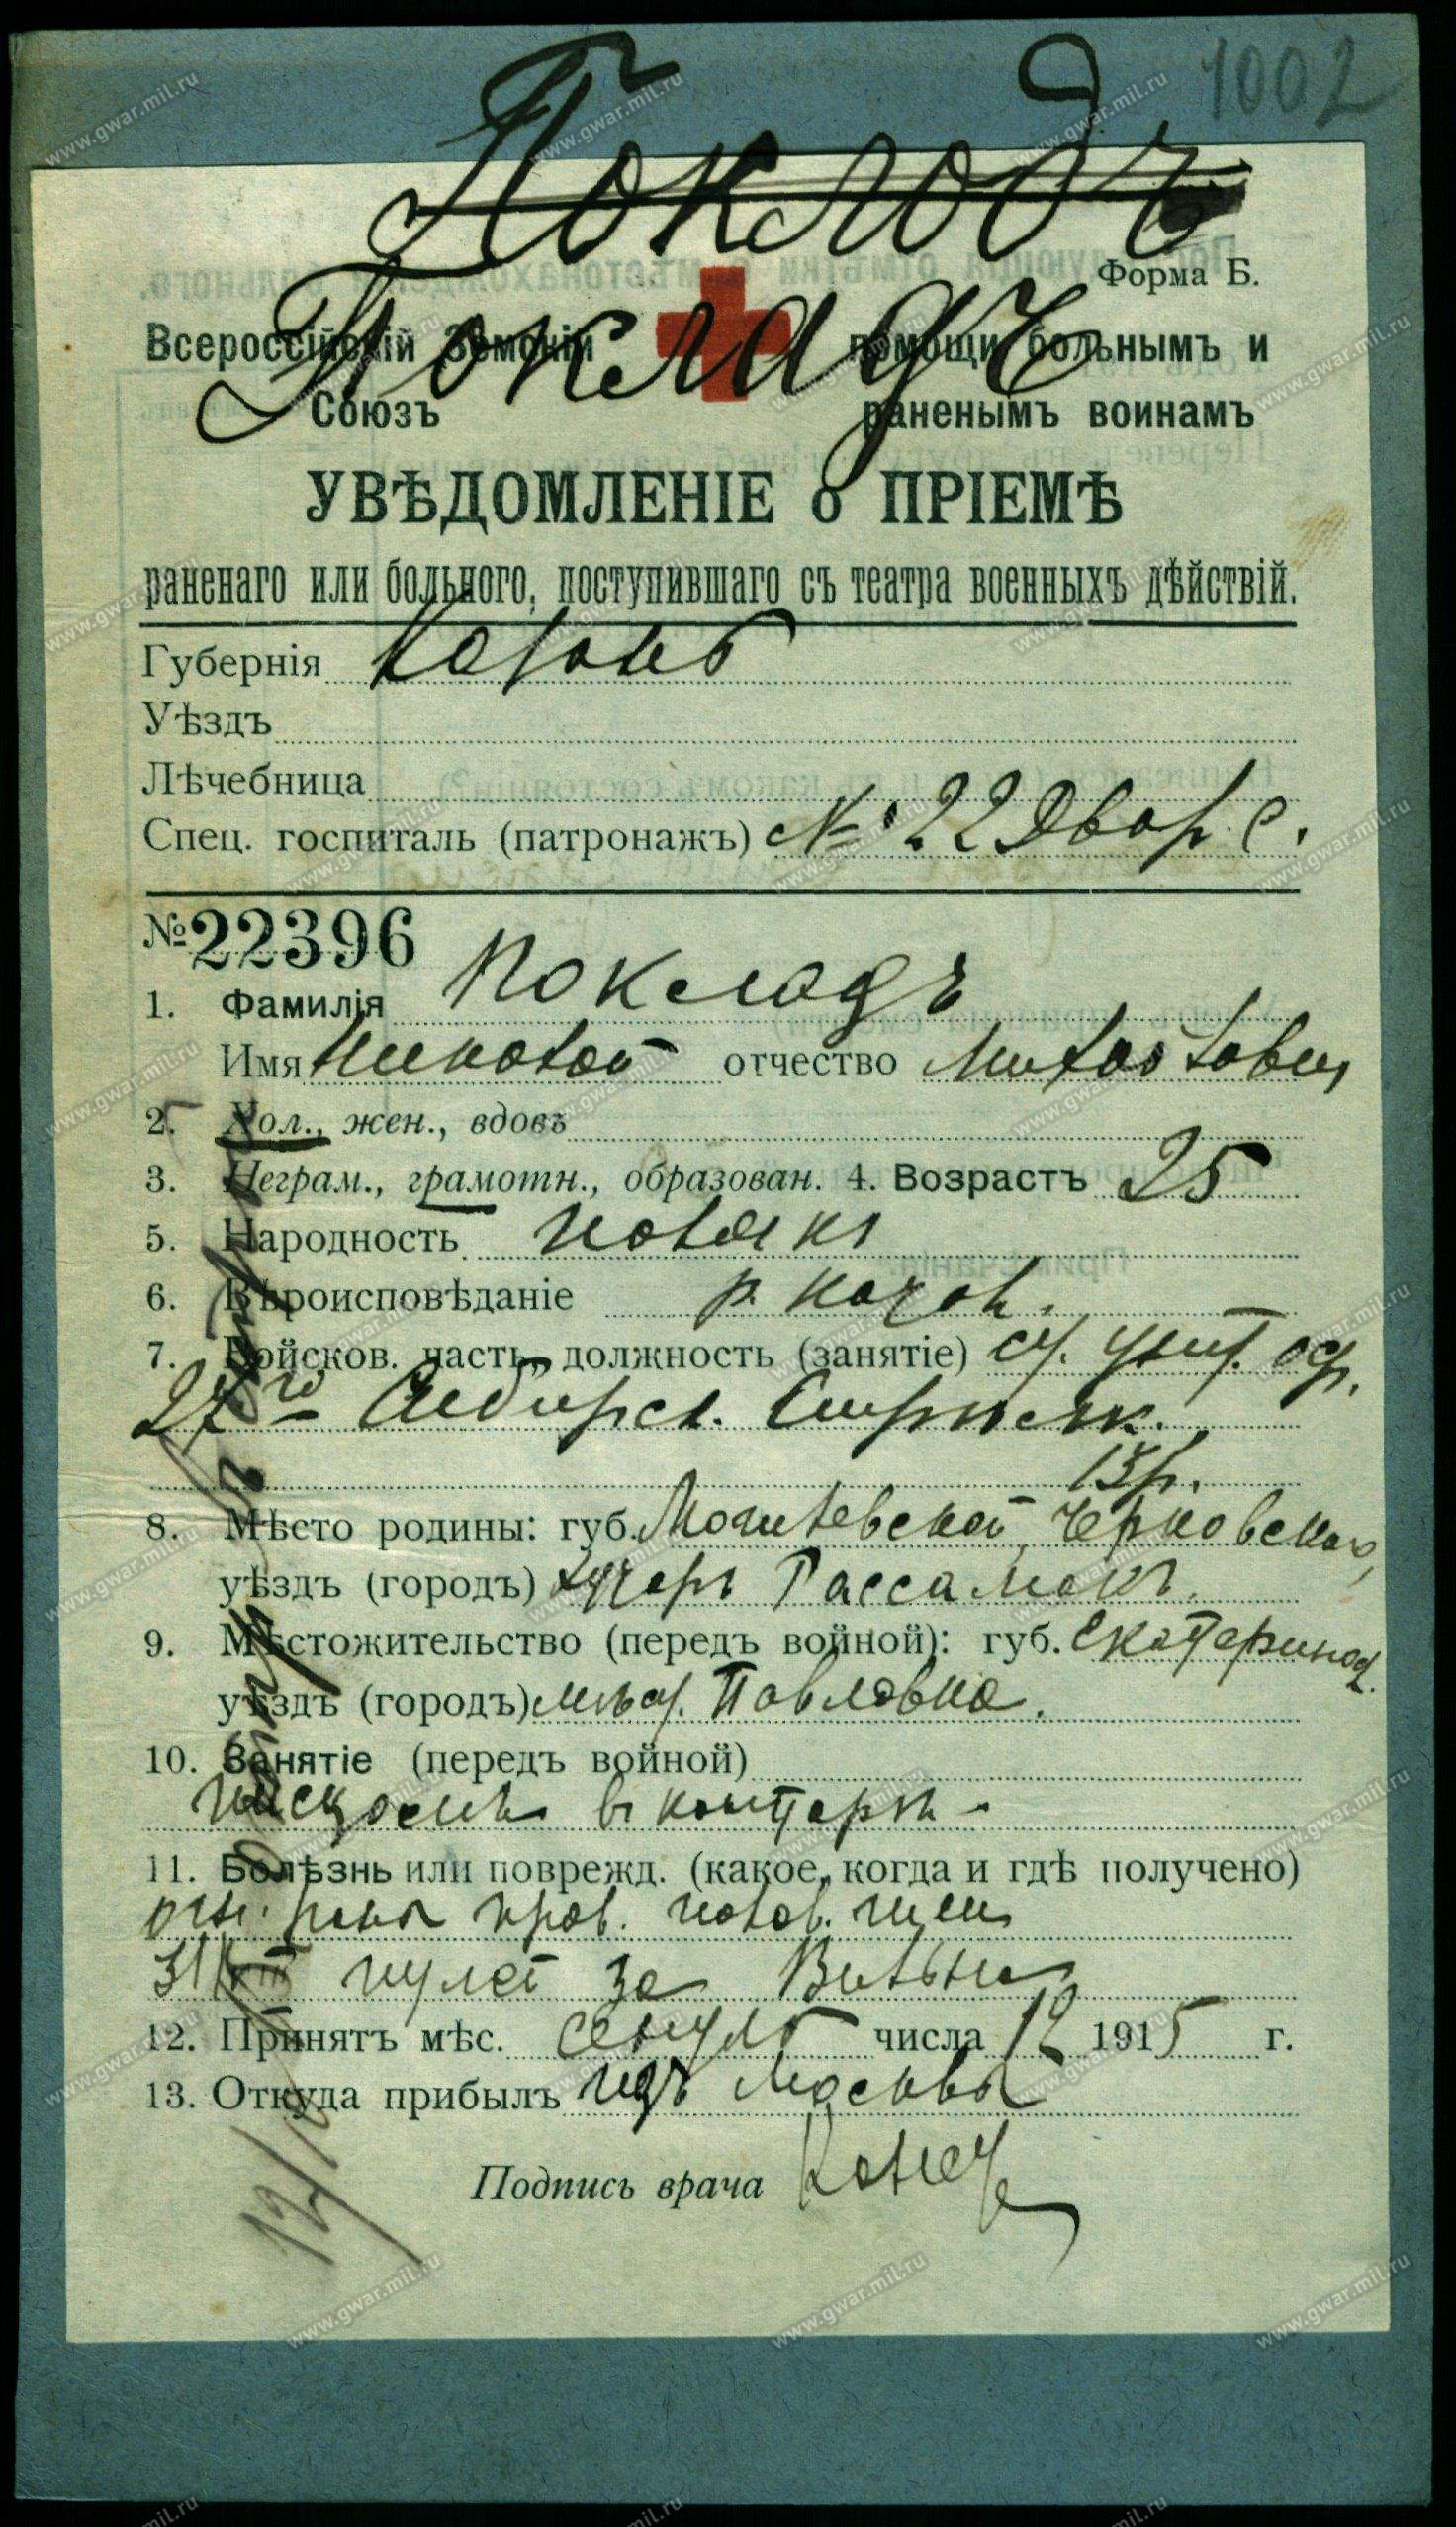 1002
Поклодъ
Форма Б.
Покладъ
Всероссійскій Земскій помощи больнымъ и
Союзъ раненымъ воинамъ
УВѢДОМЛЕНІЕ о ПРІЕМѢ
раненаго или больного, поступившаго съ театра военныхъ дѣйствій.
Губернія Казань
Уѣздъ
Лѣчебница
Спец. госпиталь (патронажъ) №: 22 Двор. с.
№ 22396
1. Фамилія Покладъ
Имя Николай отчество Михайлович
2. Хол., жен., вдовъ
3. Неграм., грамотн., образован. 4. Возрастъ 25
5. Народность полякъ
6. Вѣроисповѣданіе р. катол.
7. Войсков. часть, должность (занятіе) ст. унт. оф.
27го Сибирск. Стр. полк.
13 р.
8. Мѣсто родины: губ. Могилевской,
уѣздъ (городъ) хуторъ Рассамахъ.
9. Мѣстожительство (передъ войной): губ. Екатеринос.
уѣздъ (городъ) мѣст. Павловка.
10. Занятіе (передъ войной)
писцомъ въ конторѣ
11. Болѣзнь или поврежд. (какое, когда и гдѣ получено)
огн. рана прав. полов. шеи
31/VIII пулей за Вильно
12. Принятъ мѣс. сентяб числа 12 1915 г.
13. Откуда прибылъ изъ Москвы
Подпись врача